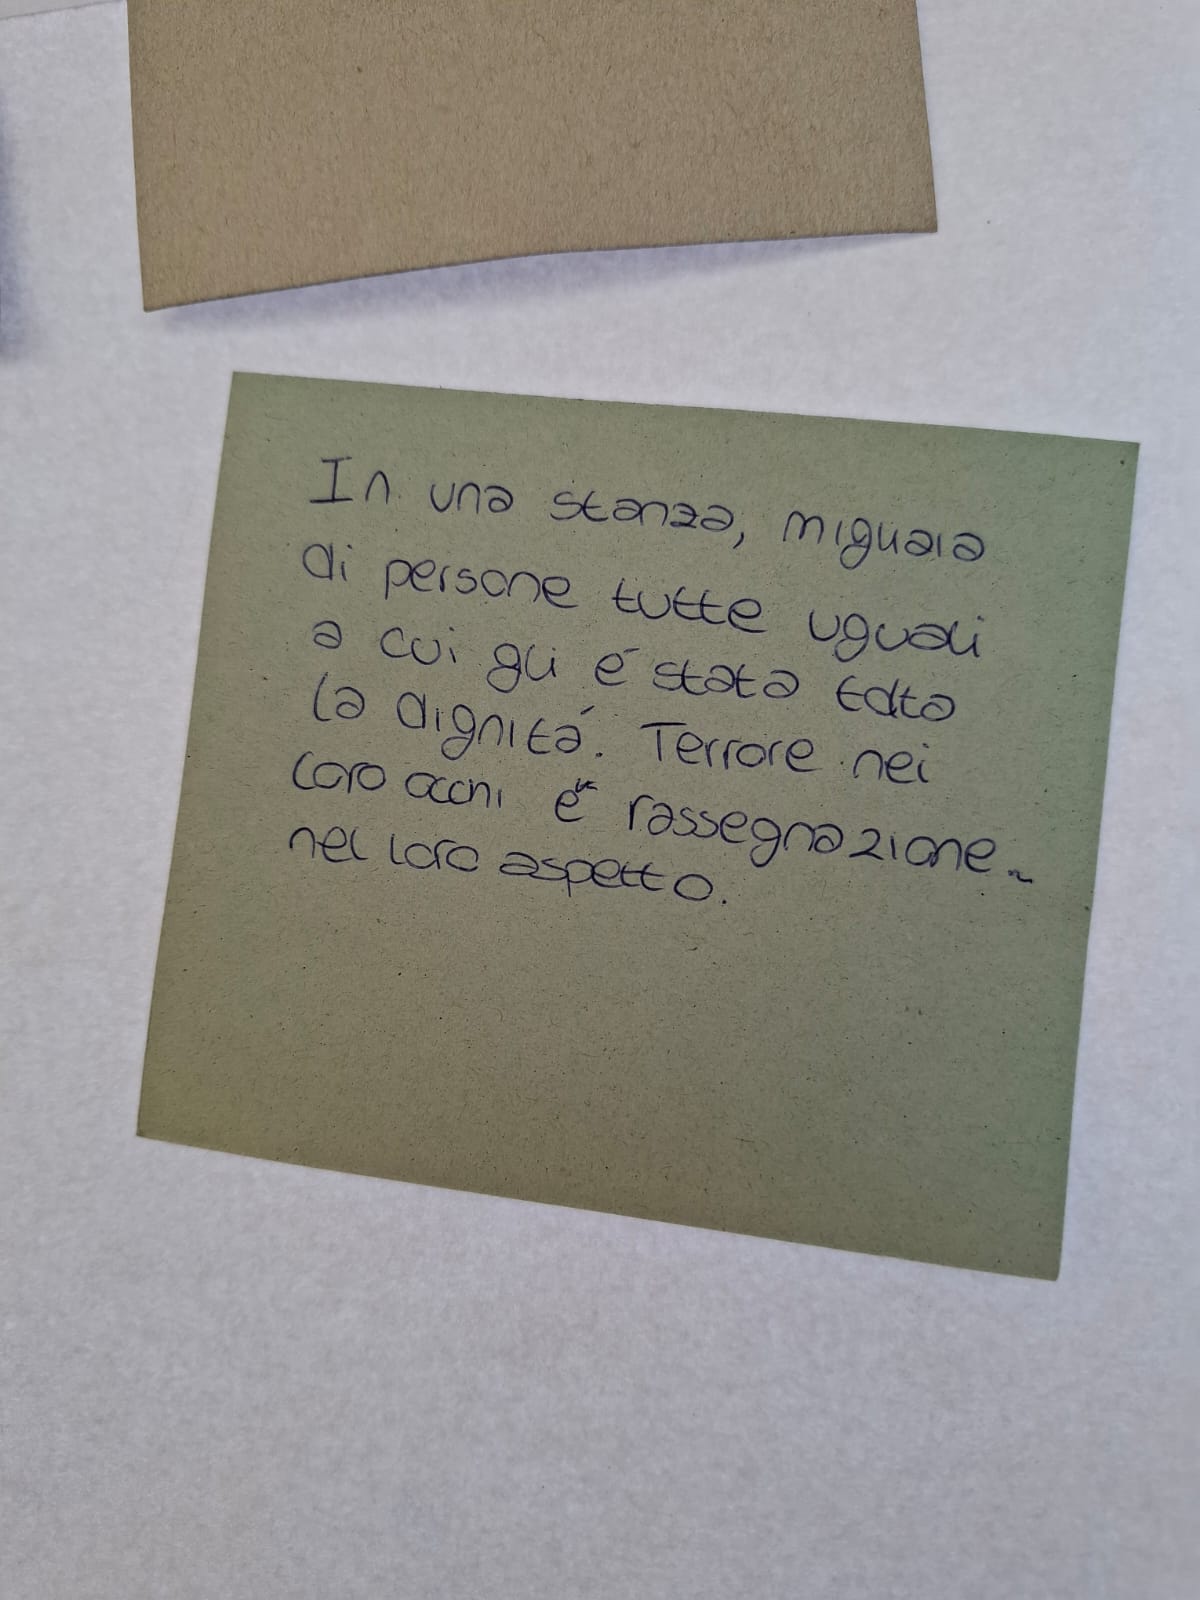 In una stanza, migliaia
di persone tutte uguali
a cui gli é stata tolta
la dignitá. Terrore nei
loro occhi e rassegnazione
nel loro aspetto.